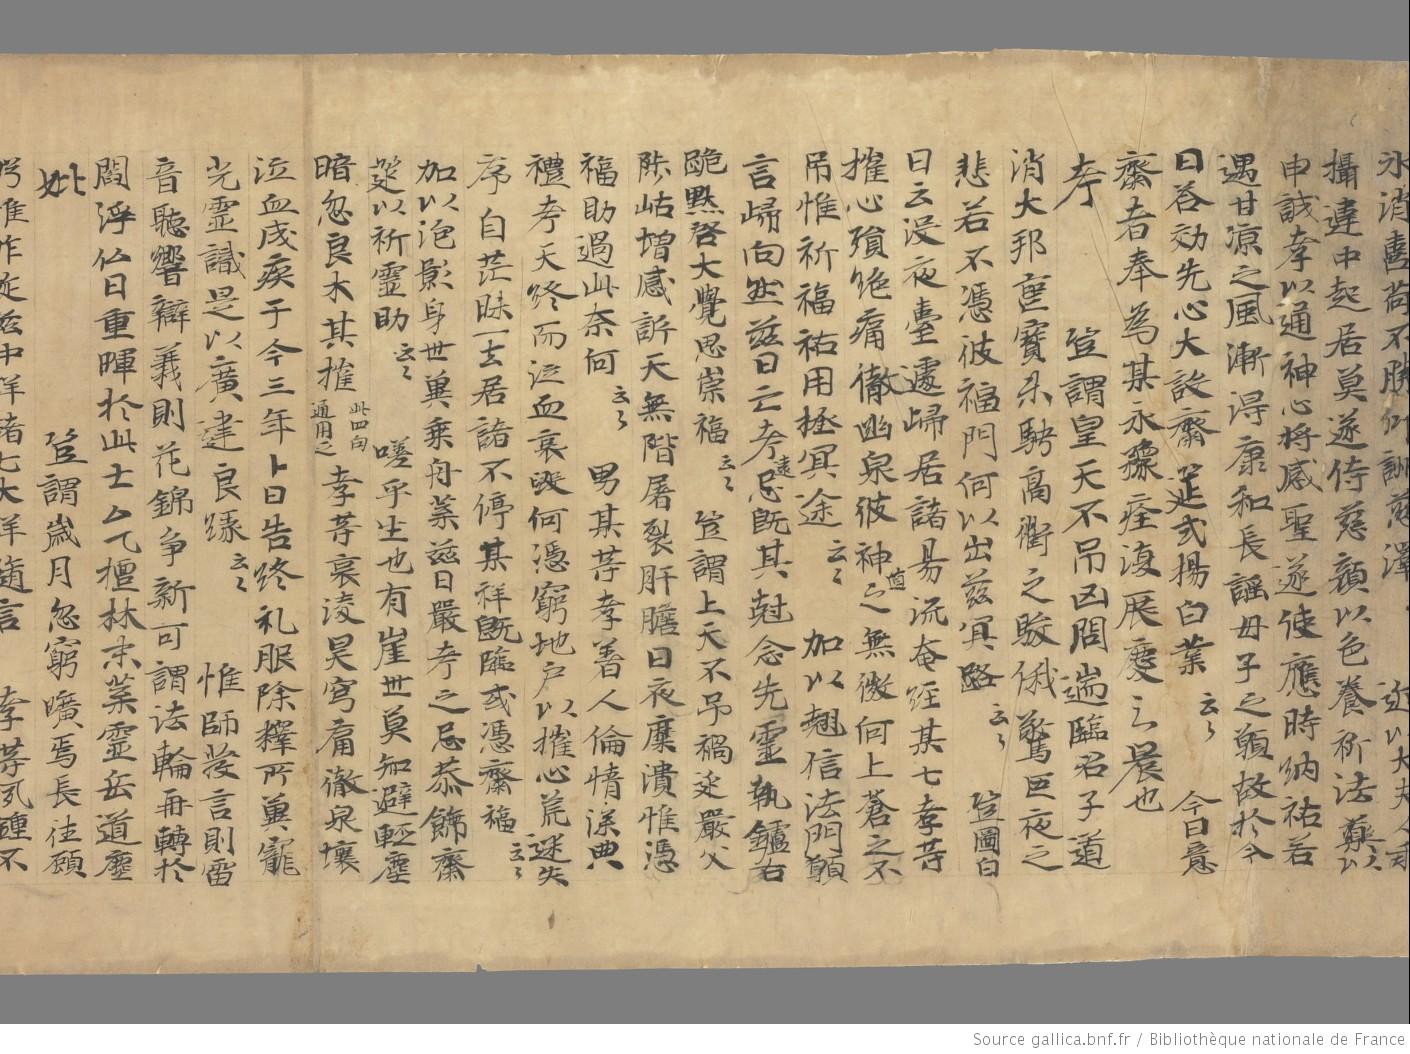 氷消喜荷不勝
攝違中起居莫遂侍慈顏以色養祈法藥以
申誠孝以通神心將感聖遂使應時納祐若
遇甘凉之風漸得康和長謡毋子之願故於今
日答効先心大設齋筵式揚白業云〻 今日意
齋者奉為某永豫痊復展慶之晨也
考 豈謂皇天不吊凶閔湍臨召子道
消大邦匿寶未騁高衢之駿俄驚巨夜之
悲若不憑彼福門何以出兹冥路云〻 豈圖白
日云浸夜臺遽歸居諸易流奄経某七孝等
摧心殞絶痛徹幽泉彼神之無徴何上蒼之不
值
吊惟祈福祐用拯冥途云〻 加以翹信法門願
言歸向然兹日亡考忌既其尅念先靈執鑪右
遠
跪黙啓大覺思崇福云〻 豈謂上天不吊禍延嚴父
陟岵増感訴天無階屠裂肝膽日夜糜潰惟憑
福助過此奈何云〻 男某等孝善人倫情深典
禮孝天終而泣血哀毀何憑窮地户以摧心荒迷失
序自茫昧一去居諸不停其祥既臨或憑齋福云〻
加以泡影身世冀乗舟業兹日嚴考之忌恭飾齋
筵以祈靈助云〻 嗟乎生也有崖世莫知避輕塵
暗忽良木其摧 此四句通用之 孝等哀淩昊穹痛徹泉壤
泣血成疾于今三年卜日告終礼服除釋所冀寵
光靈識是以廣建良縁云〻 惟師發言則雷
音聽響辯義則花錦争新可謂法輪再轉於
閻浮仏日重暉於此土厶乙檀林末業靈岳道塵
妣 豈謂歳月忽窮曠焉長往顧
惟昨